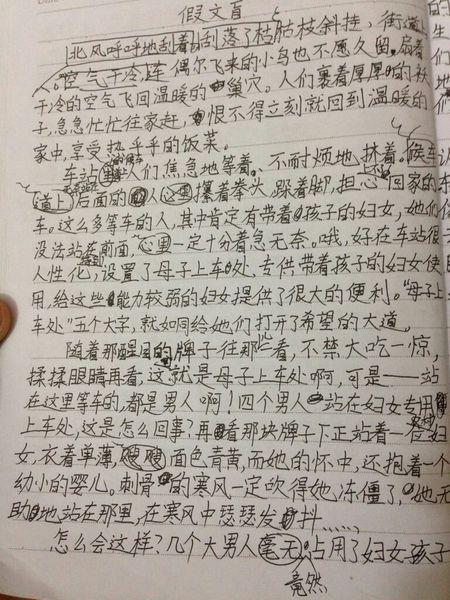 假文盲
北风呼呼地刮着,刮落了枯枯枝斜挂,街道上
。空气干冷,连偶尔飞来的小鸟也不愿久留,扇着
干冷的空气飞回温暖的巢穴。人们裹着厚厚的袄
子,急急忙忙往家赶,恨不得立刻就回到温暖的
家中,享受热乎乎的饭菜。
车站里人们焦急地等着,不耐烦地挤着。候车
道上后面的人攥着拳头,踩着脚,担心回家的东
车。这么多等车的人,其中肯定有带着孩子的妇女,她们
没法站在前面,心里一定十分着急无奈。哦,好在车站很
人性化,设置了母子上车处,专供带着孩子的妇女使
用,给这些能力较弱的妇女提供了很大的便利。“母子上
车处”五个大字,就如同给她们打开了希望的大道。
随着那醒目的牌子往那一看,不禁大吃一惊,
揉揉眼睛再看,这就是母子上车处啊,可是——站
在这里等车的,都是男人啊!四个男人站在妇女专用
上车处,这是怎么回事?再看那块牌子下正站着一位妇
女,衣着单薄,面色青黄,而她的怀中,还抱着一个
幼小的婴儿。刺骨的寒风一定吹得她冻僵了,她无
助地站在那里,在寒风中瑟瑟发抖……
怎么会这样?几个大男人毫无占用了妇女孩子
竟然